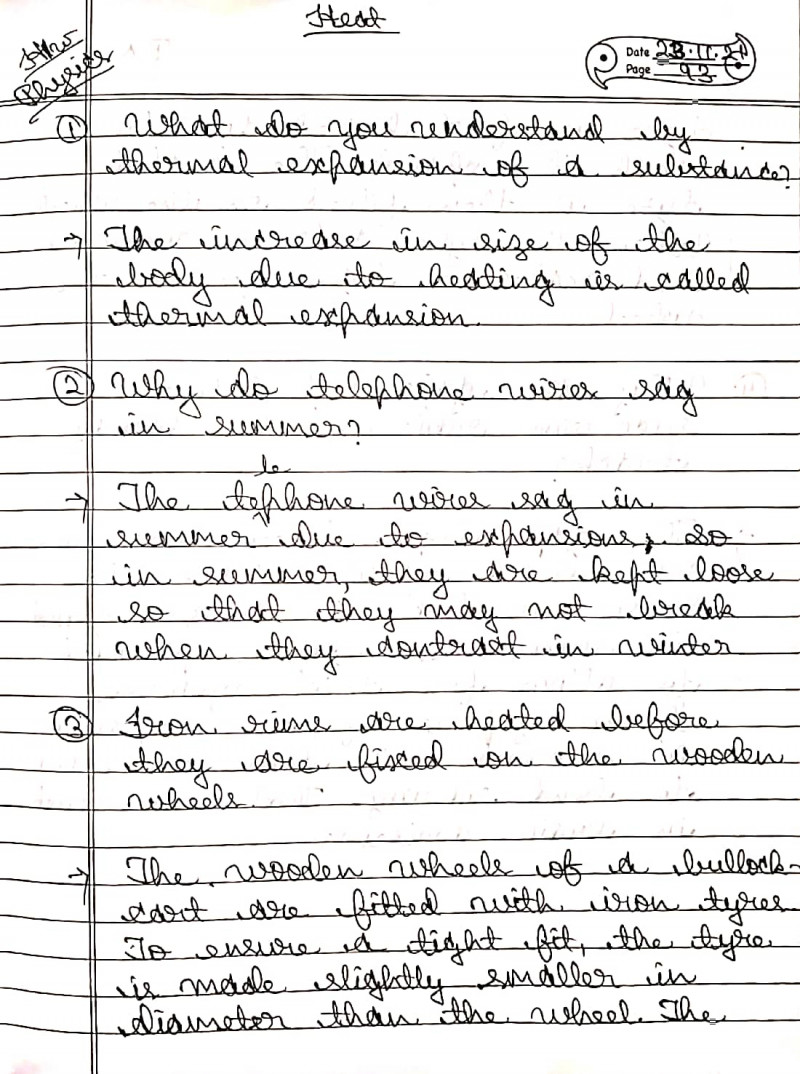 Heat
H/W
Physics
Date 23.11.21
Page 93
① What do you understand by
thermal expansion of a substance?
→ The increase in size of the
body due to heating is called
thermal expansion.
② Why do telephone wires sag
in summer?
le
→ The tephone wires sag in
summer due to expansions, so
in summer, they are kept loose
so that they may not break
when they contract in winter
③ Iron rims are heated before
they are fixed on the wooden
wheels.
→ The wooden wheels of a bullock-
cart are fitted with iron tyres
To ensure a tight fit, the tyre
is made slightly smaller in
diameter than the wheel. The